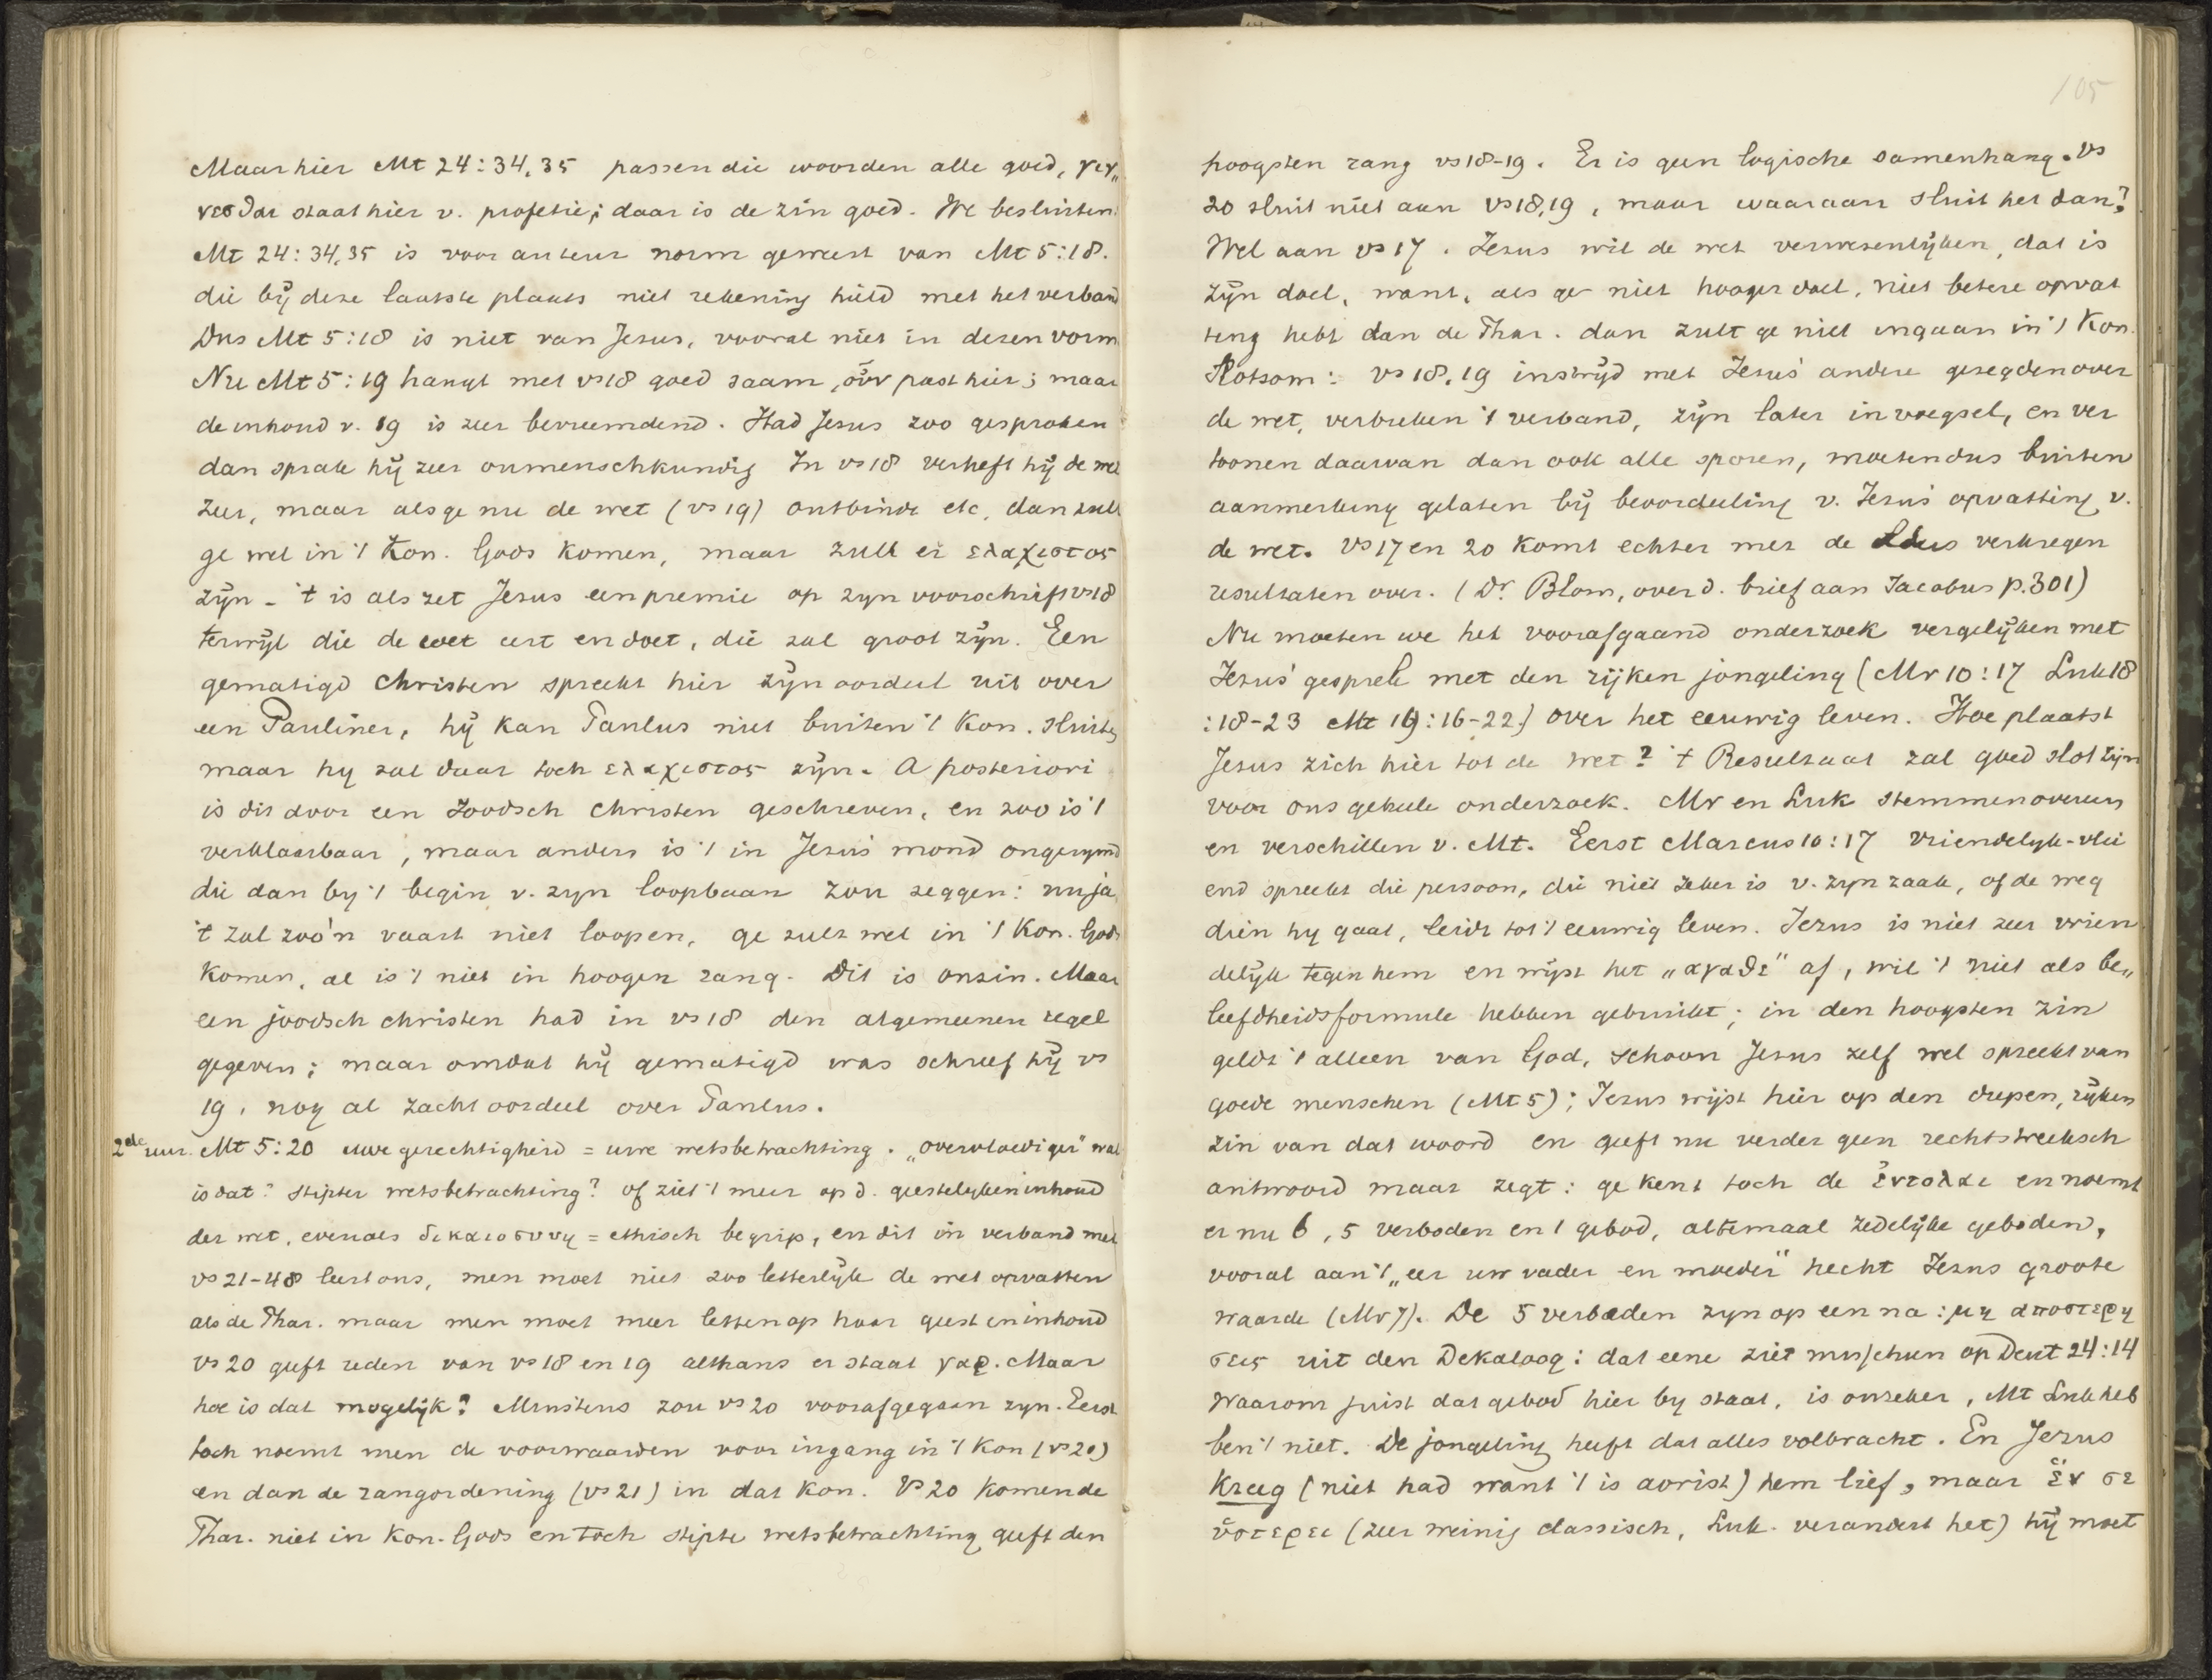 Maar hier Mt 24:34.35 passen die woorden alle goed, γεγ„
νεσθαι staat hier v. profetie; daar is de zin goed. We besluiten:
Mt 24:34.35 is voor auteur norm geweest van Mt 5:18.
die bij deze laatste plaats niet rekening hield met het verband
Dus Mt 5:18 is niet van Jezus, vooral niet in dezen vorm
Nu Mt 5:19 hangt met vs 18 goed saam, οὖν past hier; maar
de inhoud v. 19 is zeer bevreemdend. Had Jezus zoo gesproken
dan sprak hij zeer onmenschkundig In vs 18 verheft hij de wet
zeer, maar als ge nu de wet (vs 19) ontbindt etc, dan zult
ge wel in 't Kon. Gods komen, maar zult er ελαχιστος
zijn - 't is als zet Jezus een premie op zyn voorschrift vs 18
terwijl die de wet eert en doet, die zal groot zijn. Een
gematigd Christen spreekt hier zijn oordeel uit over
een Pauliner, hij kan Paulus niet buiten 't Kon. sluiten
maar hy zal daar toch ελαχιστος zijn. A posteriori
is dit door een Joodsch Christen geschreven, en zoo is 't
verklaarbaar, maar anders is 't in Jezus' mond ongerymd
die dan by 't begin v. zyn loopbaan zou zeggen: nu ja
't zal zoo'n vaart niet loopen, ge zult wel in 't Kon. Gods
komen, al is 't niet in hoogen rang. Dit is onzin. Maar
een joodsch christen had in vs 18 den algemeenen regel
gegeven; maar omdat hij gematigd was schreef hij vs
19, nog al zacht oordeel over Paulus.
2de uur. Mt 5:20 uwe gerechtigheid = uwe wetsbetrachting. „overvloediger" wat
is dat? stipter wetsbetrachting? of ziet 't meer op d. geestelyken inhoud
der wet, evenals δικαιοσυνη = ethisch begrip, en dit in verband met
vs 21-48 leert ons, men moet niet zoo letterlijk de wet opvatten
als de Phar. maar men moet meer letten op haar geest en inhoud
vs 20 geeft reden van vs 18 en 19 althans er staat γαρ. Maar
hoe is dat mogelijk? Minstens zou vs 20 voorafgegaan zyn. Eerst
toch noemt men de voorwaarden voor ingang in 't Kon (vs 20)
en dan de rangordening (vs 21) in dat Kon. Vs 20 komen de
Phar. niet in Kon. Gods en toch stipte wetsbetrachting geeft den
105
hoogsten rang vs 18-19. Er is geen logische samenhang. Vs
20 sluit niet aan vs 18,19, maar waaraan sluit het dan?
Wel aan vs 17. Jezus wil de wet verwesenlijken, dat is
zijn doel, want, als ge niet hooger doel, niet betere opvat
ting hebt dan de Phar. dan zult ge niet ingaan in 't Kon.
Slotsom: vs 18,19 in strijd met Jezus' andere gezegden over
de wet, verbreken 't verband, zijn later invoegsel, en ver
toonen daarvan dan ook alle sporen, moeten dus buiten
aanmerking gelaten bij beoordeeling v. Jezus' opvatting v.
de wet. Vs 17 en 20 komt echter met de verkregen
resultaten over. (Dr. Blom, over d. brief aan Jacobus p. 301)
Nu moeten we het voorafgaand onderzoek vergelijken met
Jezus' gesprek met den rijken jongeling (Mr 10:17 Luk 18
:18-23 Mt 19:16-22) over het eeuwig leven. Hoe plaatst
Jezus zich hier tot de wet? 't Resultaat zal goed slot zijn
voor ons geheele onderzoek. Mr en Luk stemmen overeen
en verschillen v. Mt. Eerst Marcus 10:17 vriendelyk-vlei
end spreekt die persoon, die niet zeker is v. zyn zaak, of de weg
dien hy gaat, leidt tot 't eeuwig leven. Jezus is niet zeer vrien
delijk tegen hem en wijst het „αγαθε" af, wil 't niet als be„
leefdheidsformule hebben gebruikt; in den hoogsten zin
geldt 't alleen van God, schoon Jezus zelf wel spreekt van
goede menschen (Mt 5); Jezus wijst hier op den diepen, rijken
zin van dat woord en geeft nu verder geen rechtstreeksch
antwoord maar zegt: ge kent toch de ἐντολαι en noemt
er nu 6, 5 verboden en 1 gebod, altemaal zedelijke geboden,
vooral aan 't „eer uw vader en moeder" hecht Jezus groote
waarde (Mr 7). De 5 verboden zyn op een na: μη αποστερη
σεις uit den Dekaloog: dat eene ziet misschien op Deut 24:14
Waarom juist dat gebod hier by staat, is onzeker, Mt Luk heb
ben 't niet. De jongeling heeft dat alles volbracht. En Jezus
kreeg (niet had want 't is aorist) hem lief, maar ἕν σε
ὑστερει (zeer weinig classisch, Luk. verandert het) hij moet